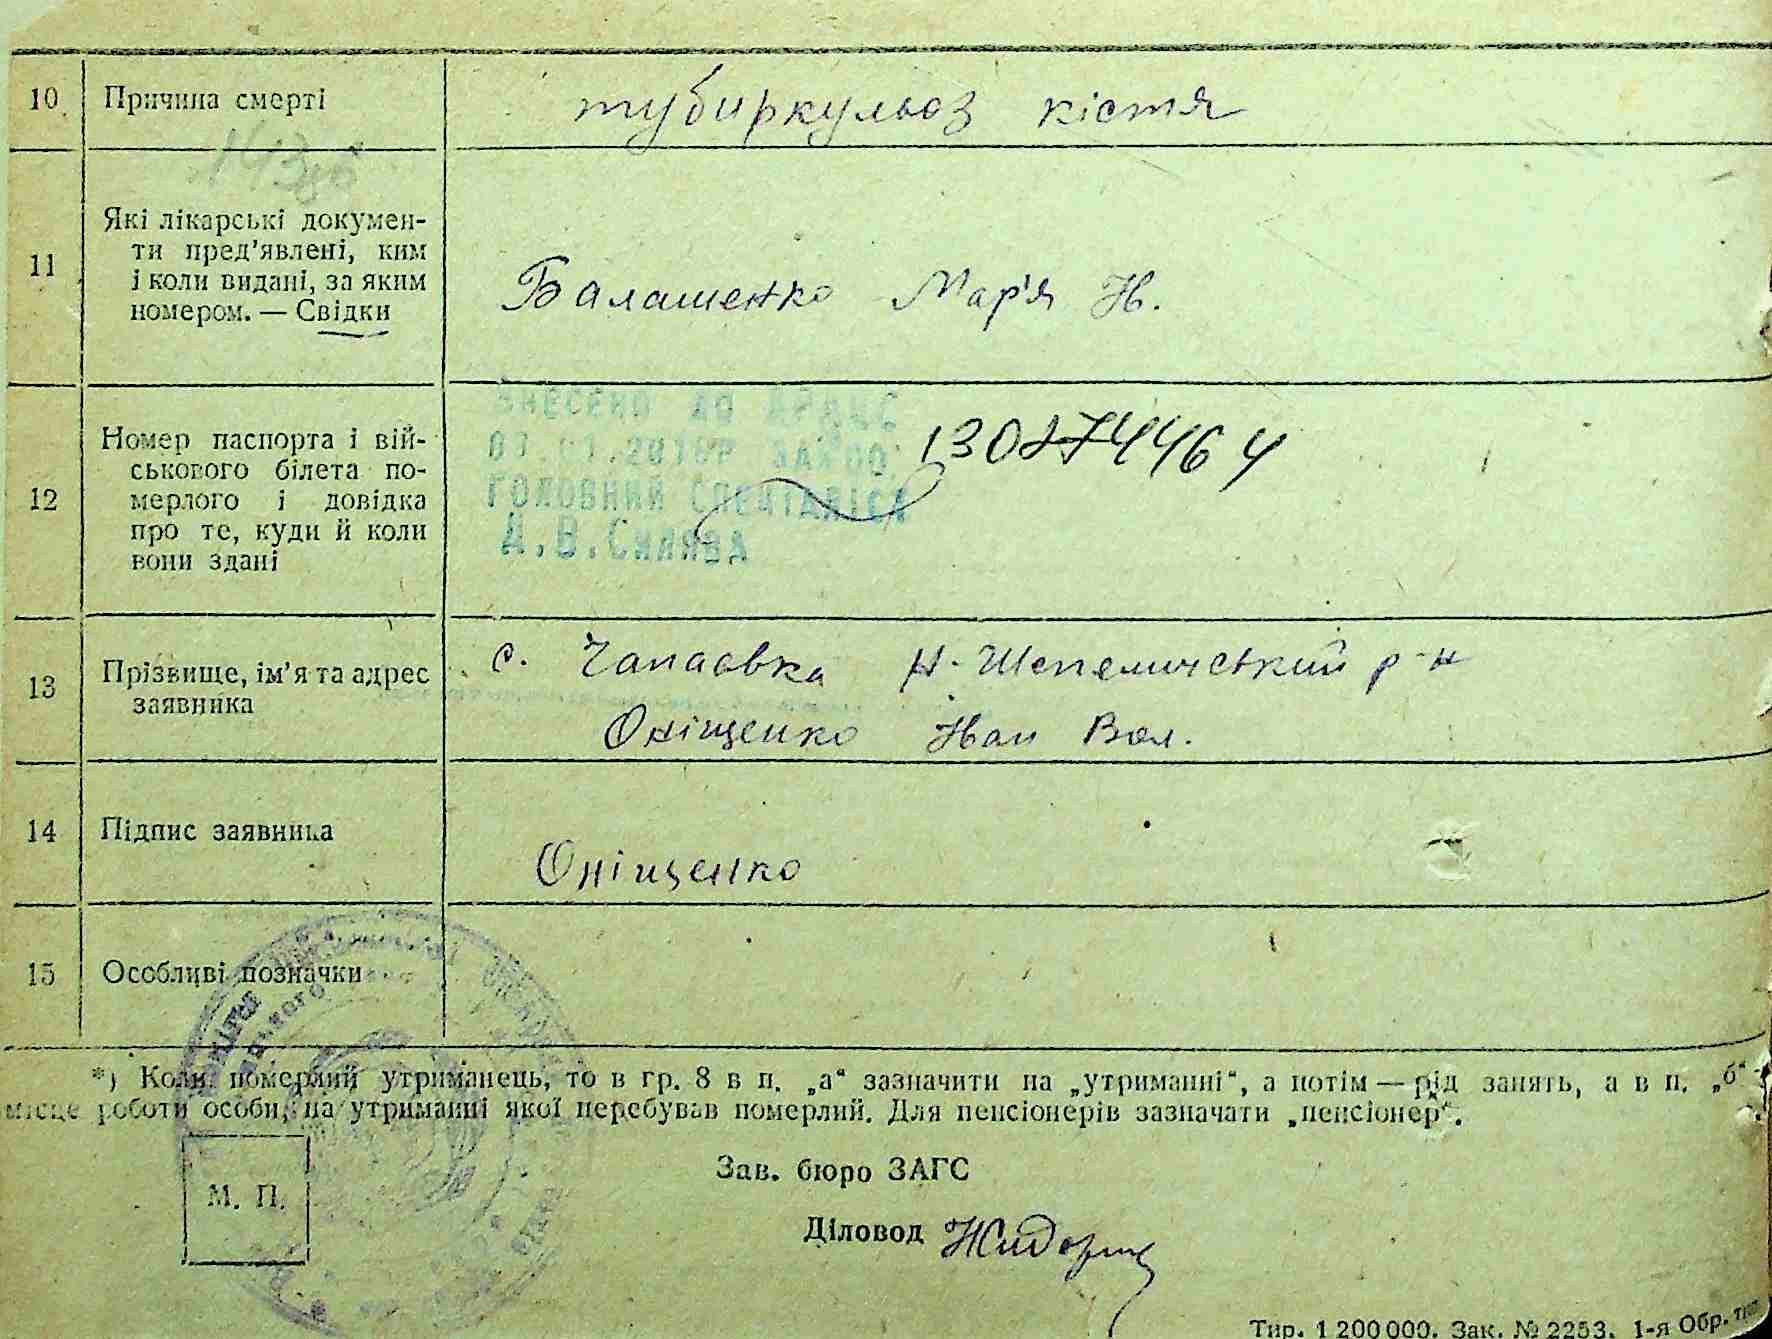 10 Причина смерті тубиркульоз кістя
11 Які лікарські докумен-
ти пред'явлені, ким
і коли видані, за яким
номером. — Свідки
Балашенко Мар'я Н.
12 Номер паспорта і вій-
ськового білета по-
мерлого і довідка
про те, куди й коли
вони здані
ВНЕСЕНО ДО ДРАЦС
ГОЛОВНИЙ СПЕЦІАЛІСТ
13 Прізвище, ім'я та адрес
заявника
с. Чапаєвка Н-Шепеличський р-н
Оніщенко Іван Вол.
14 Підпис заявника
Оніщенко
15 Особливі позначки
*) Коли померлий утриманець, то в гр. 8 в п. „а“ зазначити на „утриманні“, а потім — рід занять, а в п. „б“ -
місце роботи особи, на утриманні якої перебував померлий. Для пенсіонерів зазначати „пенсіонер“.
М. П.
Зав. бюро ЗАГС
Діловод
Тир. 1 200 000. Зак. № 2253. 1-я Обр. тип